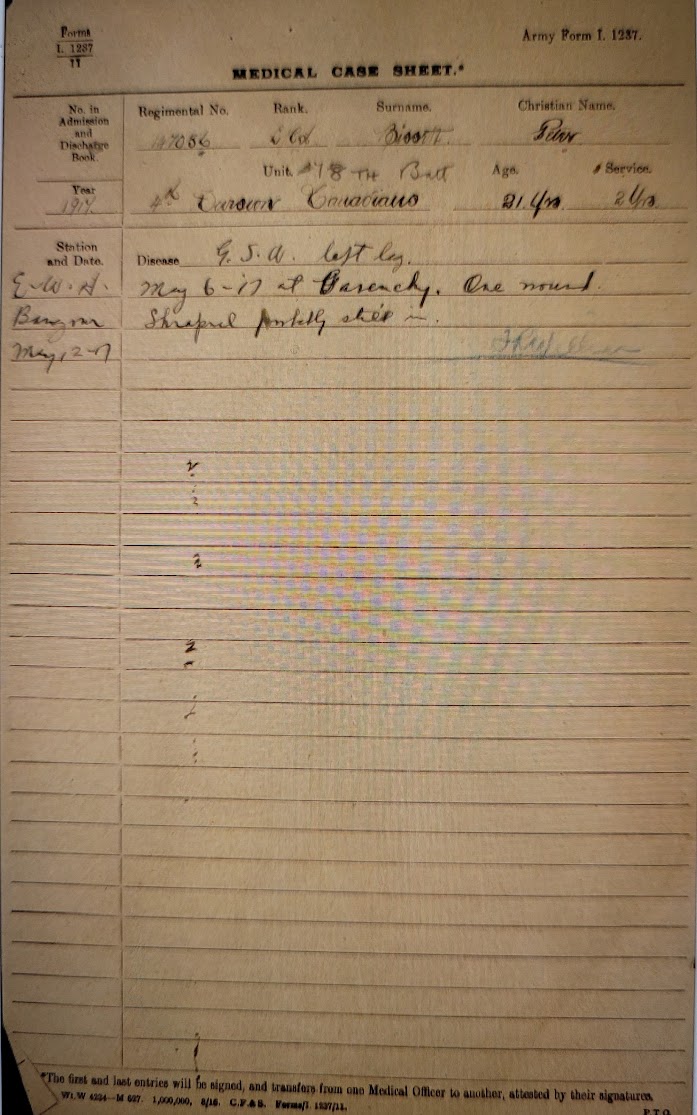 Forms
I. 1237
11
Army Form I. 1237.
MEDICAL CASE SHEET.*
No. in Admission and Discharge Book.
Regimental No. Rank. Surname. Christian Name.
147056 Peter
Unit. 78TH Batt Age. Service.
Year
1917. 4th Canadians 21 Yrs 2 Yrs
Station and Date.
Disease G.S.W. left leg.
E.W.H. May 6-17 at One wound.
Bangour Shrapnel still in.
May 12-17
*The first and last entries will be signed, and transfers from one Medical Officer to another, attested by their signatures.
Wt. W 4234—M 637. 1,000,000, 8/16. C.F.&S. Forms/I. 1237/11.
P.T.O.